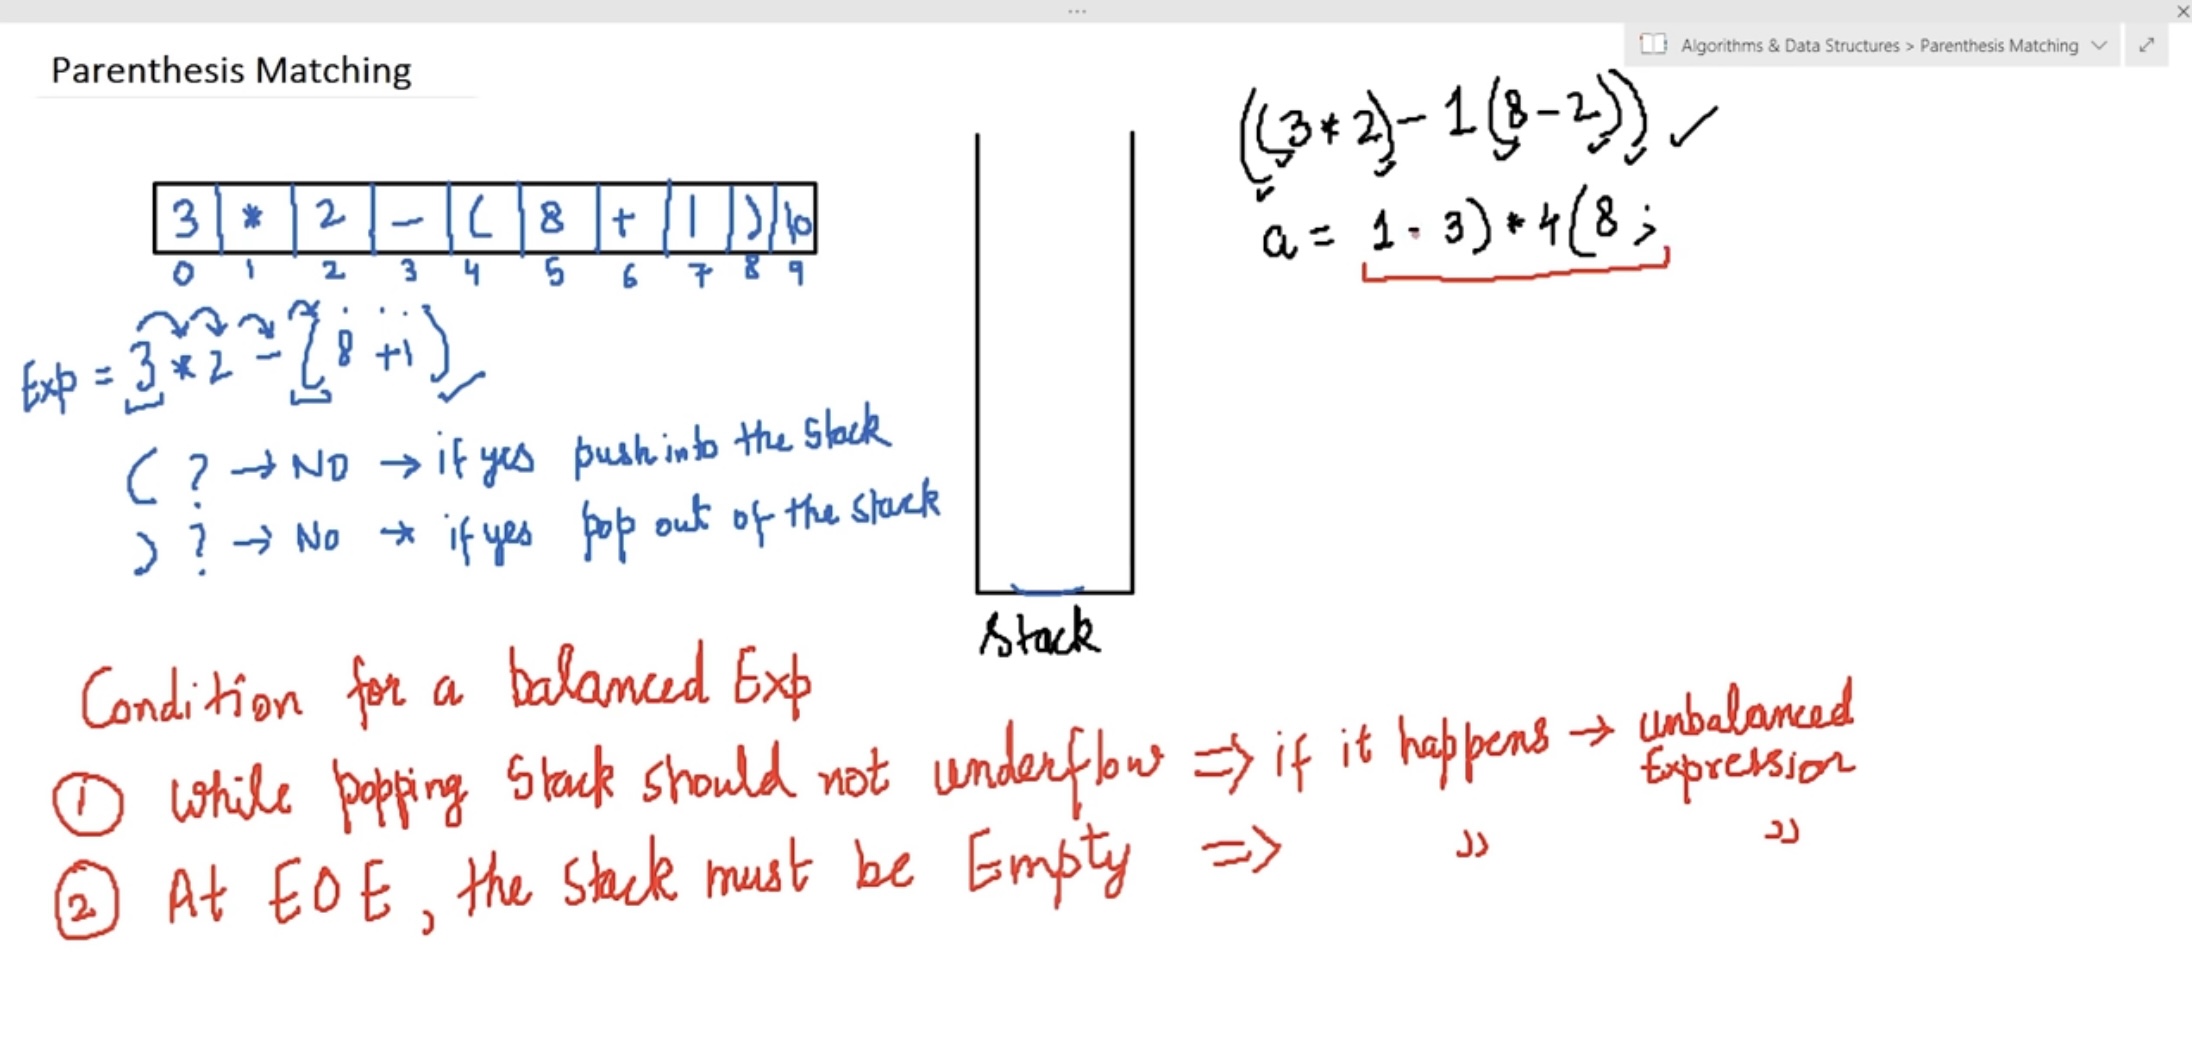 Algorithms & Data Structures > Parenthesis Matching
Parenthesis Matching
((3*2)-1(8-2)) ✓
a = 1-3)*4(8;
3 * 2 - ( 8 + 1 ) \0
0 1 2 3 4 5 6 7 8 9
Exp = 3*2-(8+1) ✓
( ? → NO → if yes push into the stack
) ? → No → if yes pop out of the stack
Stack
Condition for a balanced Exp
① While popping Stack should not underflow => if it happens → unbalanced
Expression
② At EOE, the Stack must be Empty => ” ”